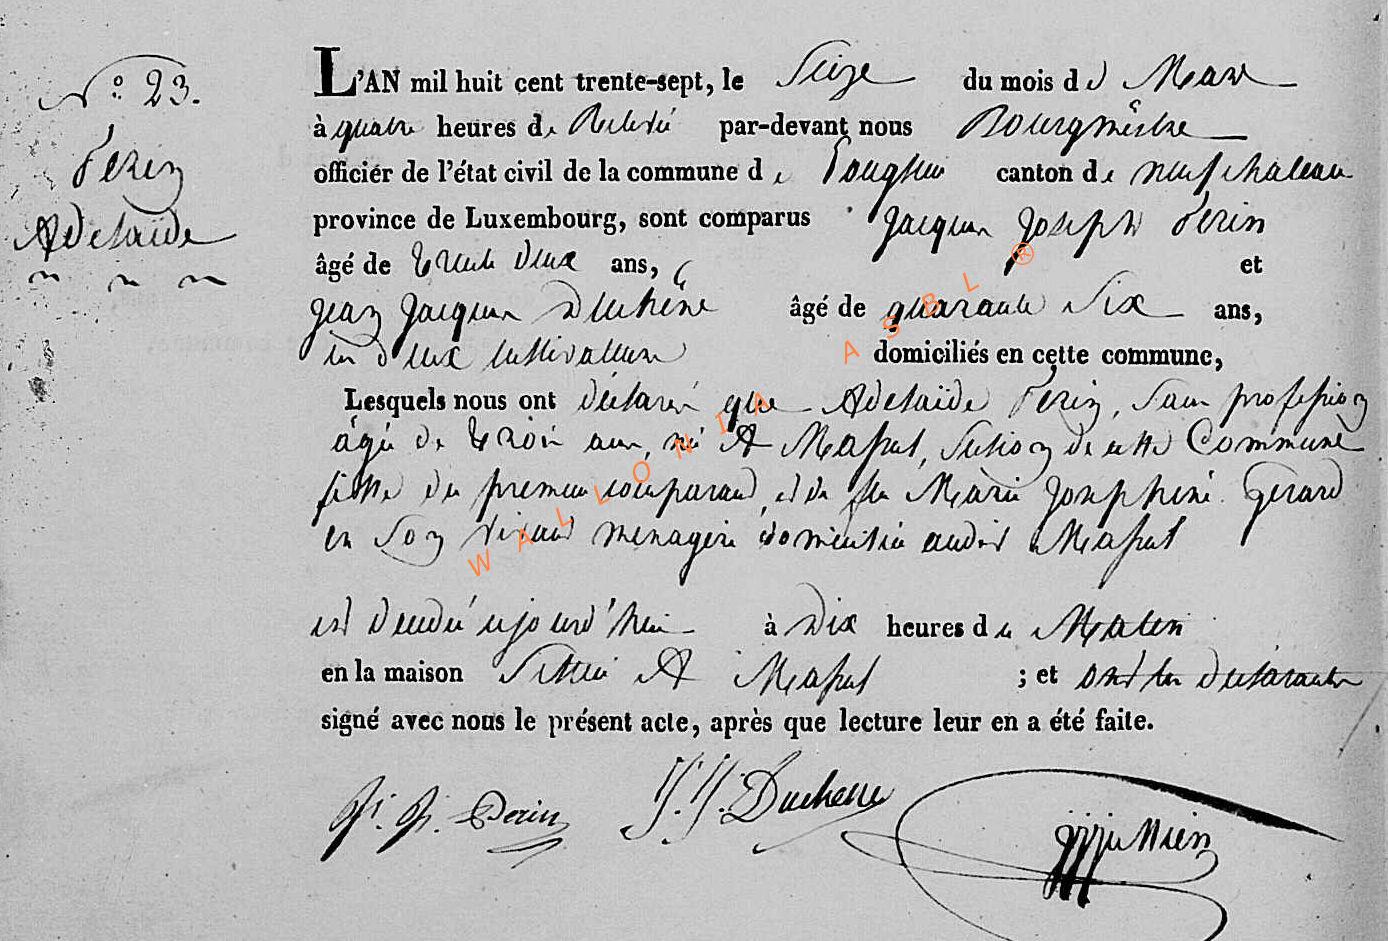 N.° 23.
Perin
Adelaïde
L'AN mil huit cent trente-sept, le Seize du mois de Mars
à quatre heures de Relevé par-devant nous Bourgmêstre
officier de l'état civil de la commune de Longlier canton de neufchateau
province de Luxembourg, sont comparus Jacques Joseph Perin
âgé de trente deux ans, et
Jean Jacques Duchêne âgé de quarante Six ans,
les deux cultivateurs domiciliés en cette commune,
Lesquels nous ont déclaré que Adelaïde Perin, Sans profession
âgée de trois ans, née A Massul, Section de cette Commune
fille du premier comparant, et de feu Marie Josephine Gerard
en Son vivant menagère domiciliée audit Massul
est décédée aujourd'hui à Dix heures du Matin
en la maison Sittuée A Massul ; et ont les déclarants
signé avec nous le présent acte, après que lecture leur en a été faite.
J. J. Perin J. J. Duchene
WALLONIA ASBL ®